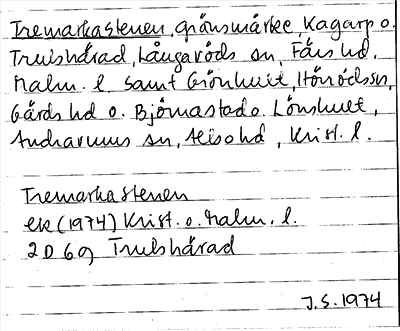 Tremarkastenen, gränsmärke, Kagarp o.
Trulshärad, Långaröds sn, Färs hd.
Malm. l samt Grönhult, Hörrödssn,
Gärds hd o. Björnastad o. Lönshult,
Andrarums sn, Albo hd, Krist. l.
Tremarkastenen
ek (1974) Krist. o. Malm. l.
2 D 6 g Trulshärad
J.S. 1974